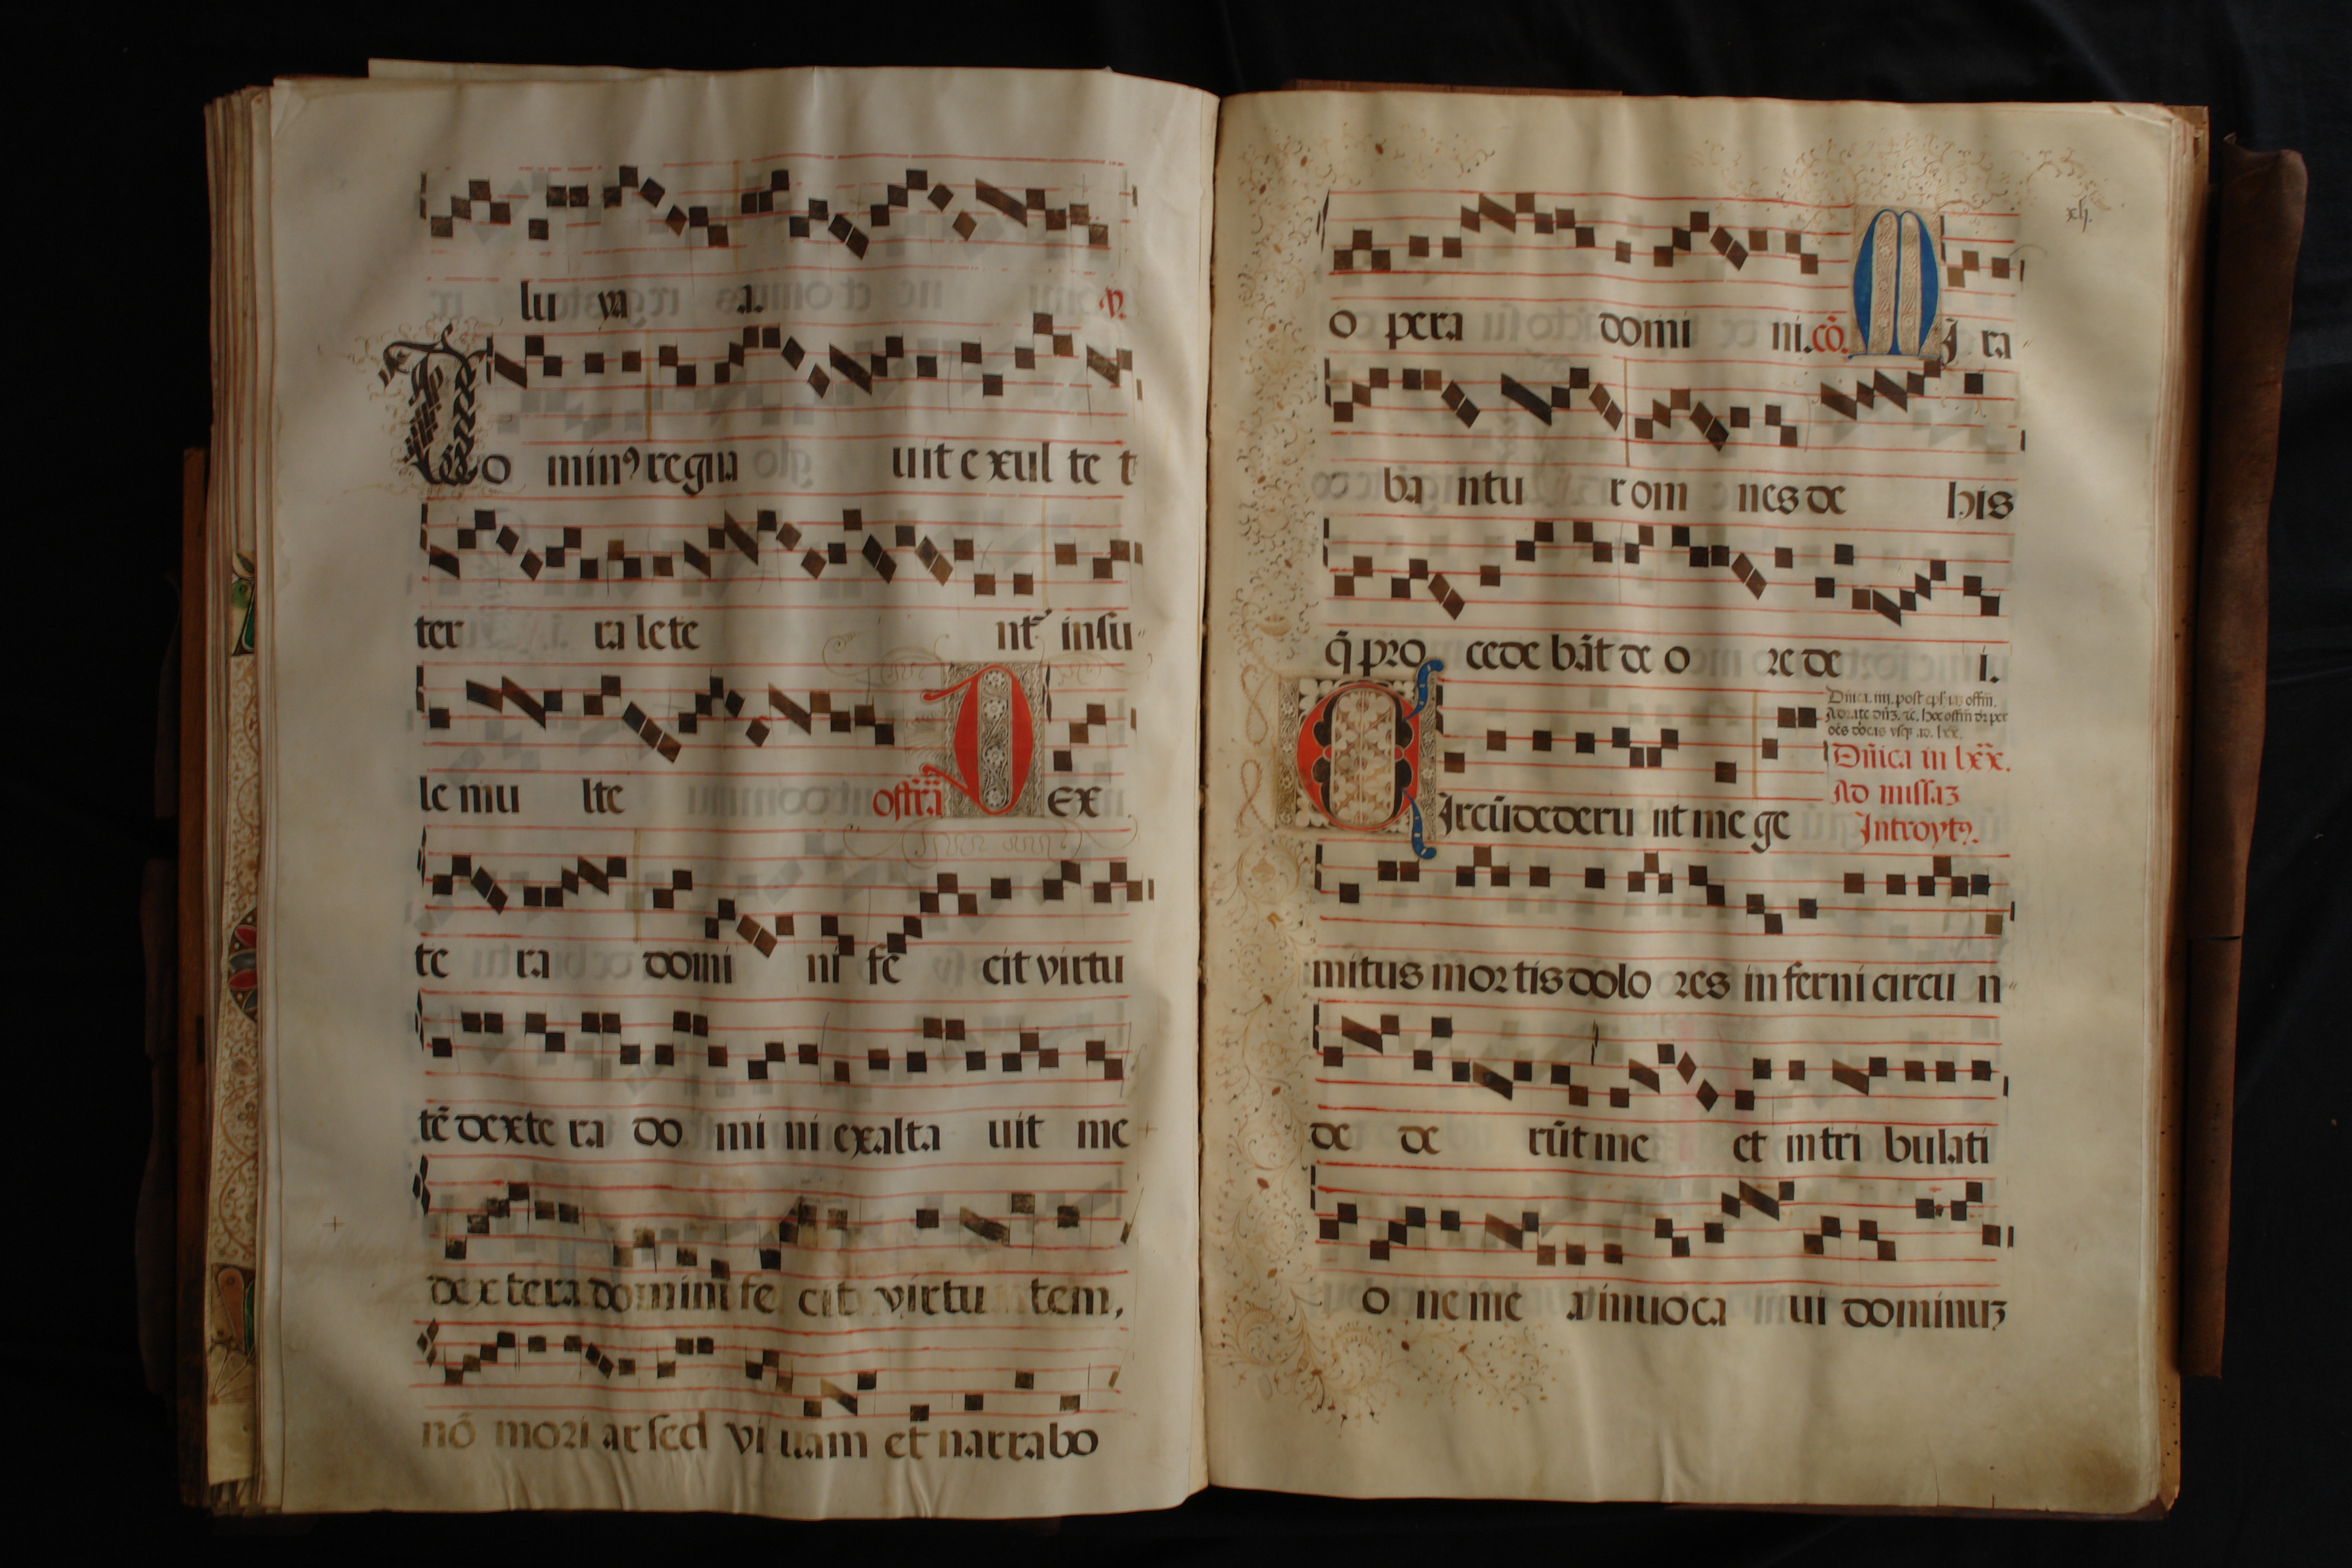 lu ya a. ℣.
Do minꝰ regna uit e xul te t
ter ra lete nt᷑ insu-
le mu lte offr̃ã Dex
te ra domi ni fe cit virtu
tẽ dexte ra do mi ni exalta uit me
dextera domini fe cit virtu tem,
nõ mori ar sed vi uam et narrabo
xlj.
o pera domi ni. cõ. MJ ra
ba ntu r om nes de his
q̃ pro cede bãt de o re de i.
Dñica. iiij. post
Adorate dñʒ. ⁊c. hoc offm̃
Dñica in lxx̃.
Ad missaʒ
Introytꝰ.
CJrcũdederu nt me ge
mitus mortis dolo res inferni circu n-
de de rũt me et intri bulati
o ne me a inuoca ui dominuʒ